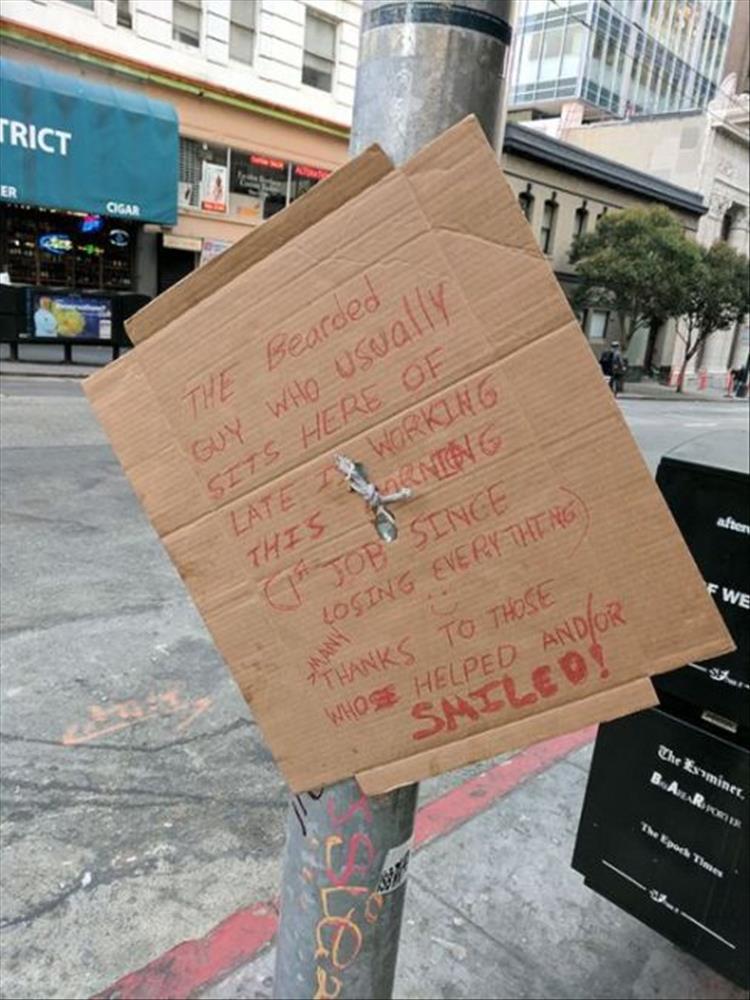 TRICT
ER
CIGAR
THE Bearded
GUY WHO USUALLY
SITS HERE OF
LATE IS WORKING
THIS MORNING
(1st JOB SINCE
LOSING EVERYTHING)
MANY
THANKS TO THOSE
WHO HELPED AND/OR
SMILED!
after
F WE
The Examiner.
BAY AREA REPORTER
The Epoch Times